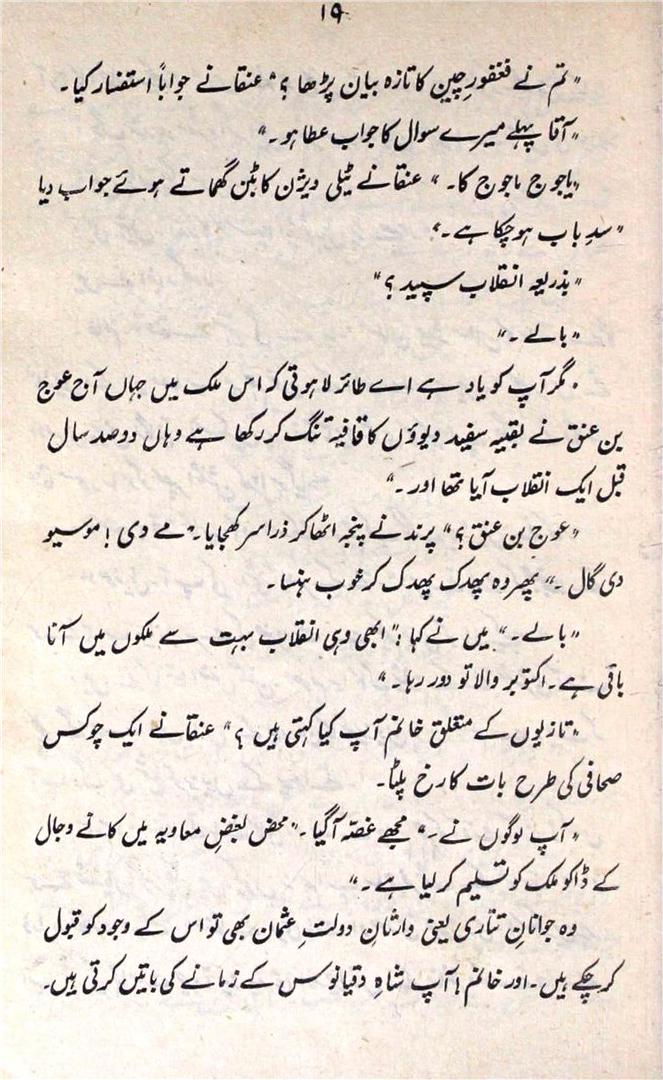 ۱۹
"تم نے فغفورِ چین کا تازہ بیان پڑھا ؟" عنقا نے جواباً استفسار کیا۔
"آقا پہلے میرے سوال کا جواب عطا ہو۔"
"یاجوج ماجوج کا۔" عنقا نے ٹیلی ویژن کا بٹن گھماتے ہوئے جواب دیا
"سدِ باب ہو چکا ہے۔"
"بذریعہ انقلاب سپید ؟"
"بالے۔"
"مگر آپ کو یاد ہے اے طائر لاہوتی کہ اس ملک میں جہاں آج عوج
بن عنق نے بقیہ سفید دیوؤں کا قافیہ تنگ کر رکھا ہے وہاں دو صد سال
قبل ایک انقلاب آیا تھا اور۔"
"عوج بن عنق ؟" پرند نے پنجہ اٹھا کر ذرا سر کھجایا۔ "مے دی ! موسیو
دی گال۔" پھر وہ پھدک پھدک کر خوب ہنسا۔
"بالے۔" میں نے کہا : "ابھی وہی انقلاب بہت سے ملکوں میں آنا
باقی ہے۔ اکتوبر والا تو دور رہا۔"
"تازیوں کے متعلق خانم آپ کیا کہتی ہیں ؟" عنقا نے ایک چوکس
صحافی کی طرح بات کا رخ پلٹا۔
"آپ لوگوں نے۔" مجھے غصّہ آ گیا۔ "محض بغضِ معاویہ میں کانے دجال
کے ڈاکو ملک کو تسلیم کر لیا ہے۔"
وہ جوانانِ تتاری یعنی وارثانِ دولتِ عثمان بھی تو اس کے وجود کو قبول
کر چکے ہیں۔ اور خانم ! آپ شاہِ دقیانوس کے زمانے کی باتیں کرتی ہیں۔